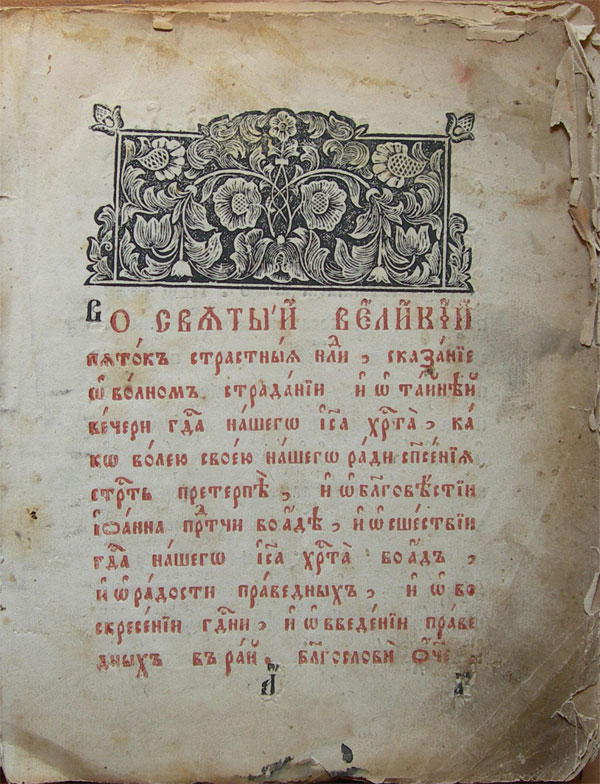 Во ст҃ы́й вели́кїй
пѧто́къ страстны́ѧ нлⷣи, сказа́нїе
ѡ҆ во́лномъ страда́нїи и҆ ѡ҆ та́инѣй
ве́чери гдⷭ҇а на́шегѡ і҆с҃а хрⷭ҇та̀, ка́
кѡ во́лею свое́ю на́шегѡ ра́ди сп҃се́нїѧ
стрⷭ҇ть претерпѣ̀, и҆ ѡ҆ бл҃говѣ́стїи
і҆ѡа́нна прⷣтчи во а҆́дѣ, и҆ ѡ҆ сше́ствїи
гдⷭ҇а на́шегѡ і҆с҃а хрⷭ҇та̀ во а҆́дъ,
и҆ ѡ҆ ра́дости пра́ведныхъ, и҆ ѡ҆ во
скресе́нїи гдⷭ҇ни, и҆ ѡ҆ введе́нїи пра́ве
дныхъ въ ра́й, бл҃гословѝ ѻ҆́ч҃е.